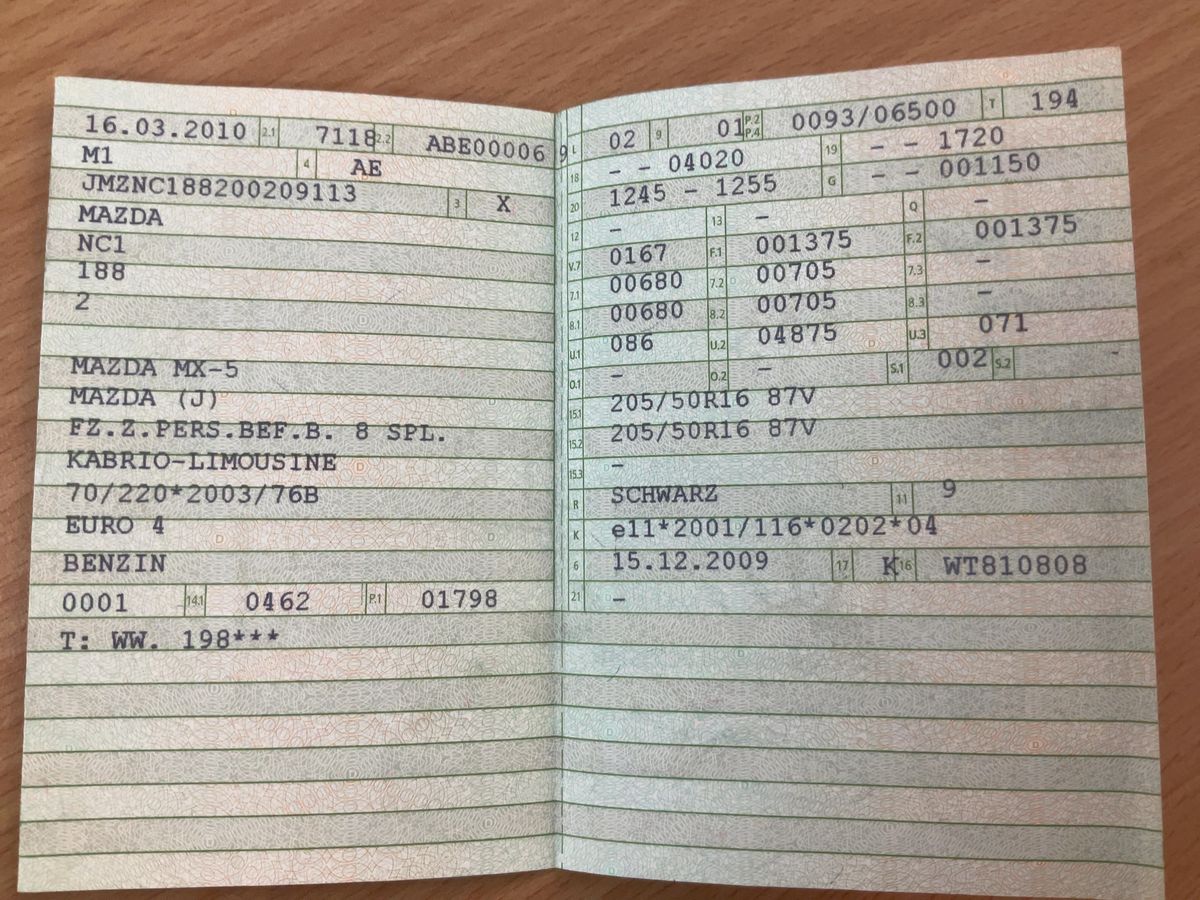 16.03.2010 2.1 7118 2.2 ABE00006 9
M1 4 AE
JMZNC188200209113 3 X
MAZDA
NC1
188
2
MAZDA MX-5
MAZDA (J)
FZ.Z.PERS.BEF.B. 8 SPL.
KABRIO-LIMOUSINE
70/220*2003/76B
EURO 4
BENZIN
0001 14.1 0462 P.1 01798
T: WW. 198***
L 02 9 01 P.2 P.4 0093/06500 T 194
18 - - 04020 19 - - 1720
20 1245 - 1255 G - - 001150
12 - 13 - Q -
V.7 0167 F.1 001375 F.2 001375
7.1 00680 7.2 00705 7.3 -
8.1 00680 8.2 00705 8.3 -
U.1 086 U.2 04875 U.3 071
O.1 - O.2 - S.1 002 S.2 -
15.1 205/50R16 87V
15.2 205/50R16 87V
15.3 -
R SCHWARZ 11 9
K e11*2001/116*0202*04
6 15.12.2009 17 K 16 WT810808
21 -